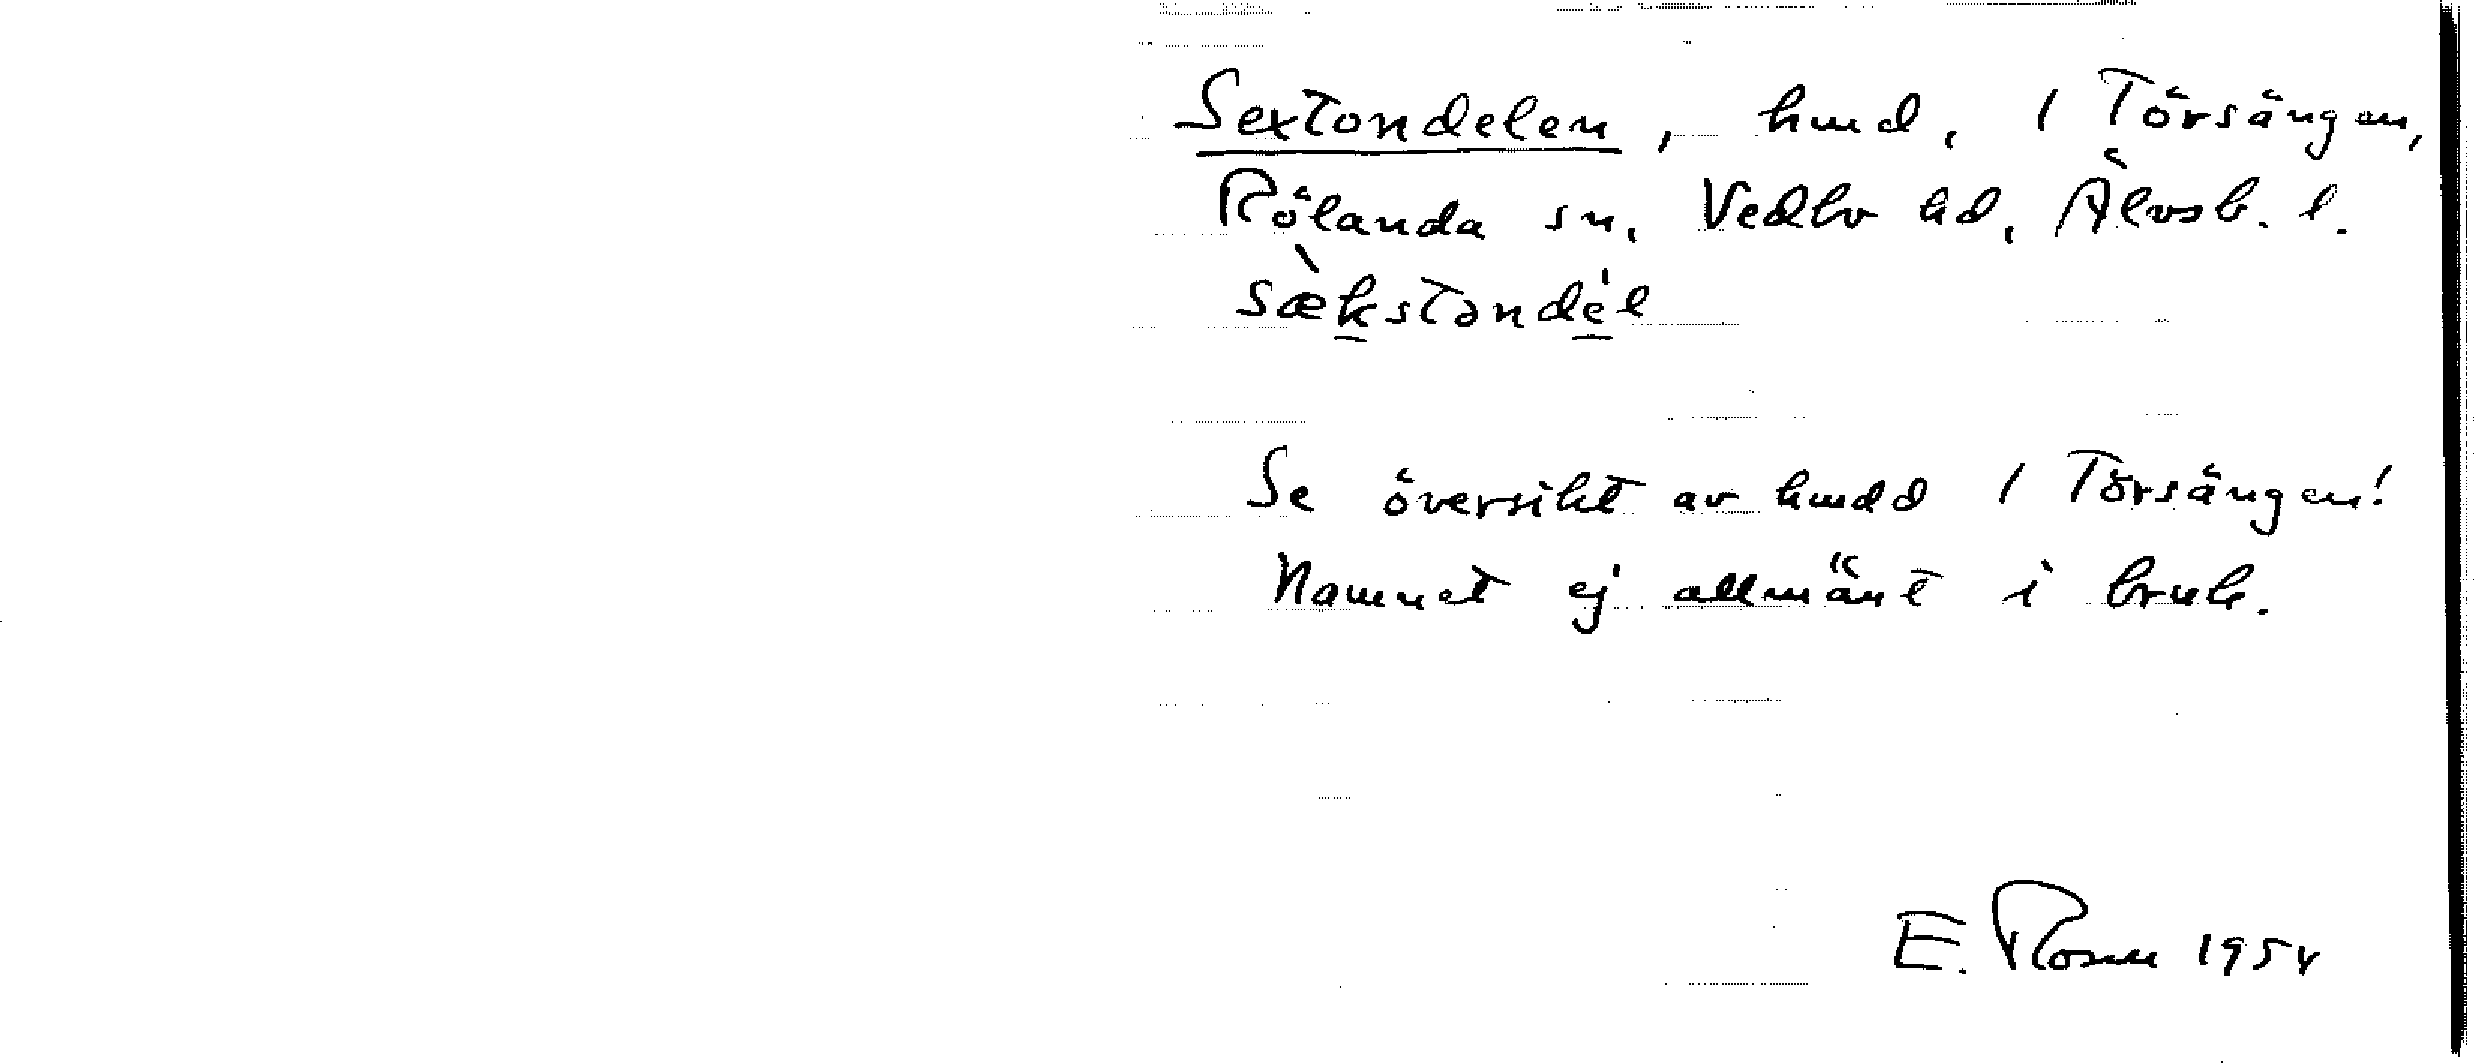 Sextondelen, hmd, 1 Törsängen,
Rölanda sn, Vedbo hd, Älvsb. l.
sækstəndél
Se översikt av hmdd 1 Törsängen!
Namnet ej allmänt i bruk.
E. Rosen 1954